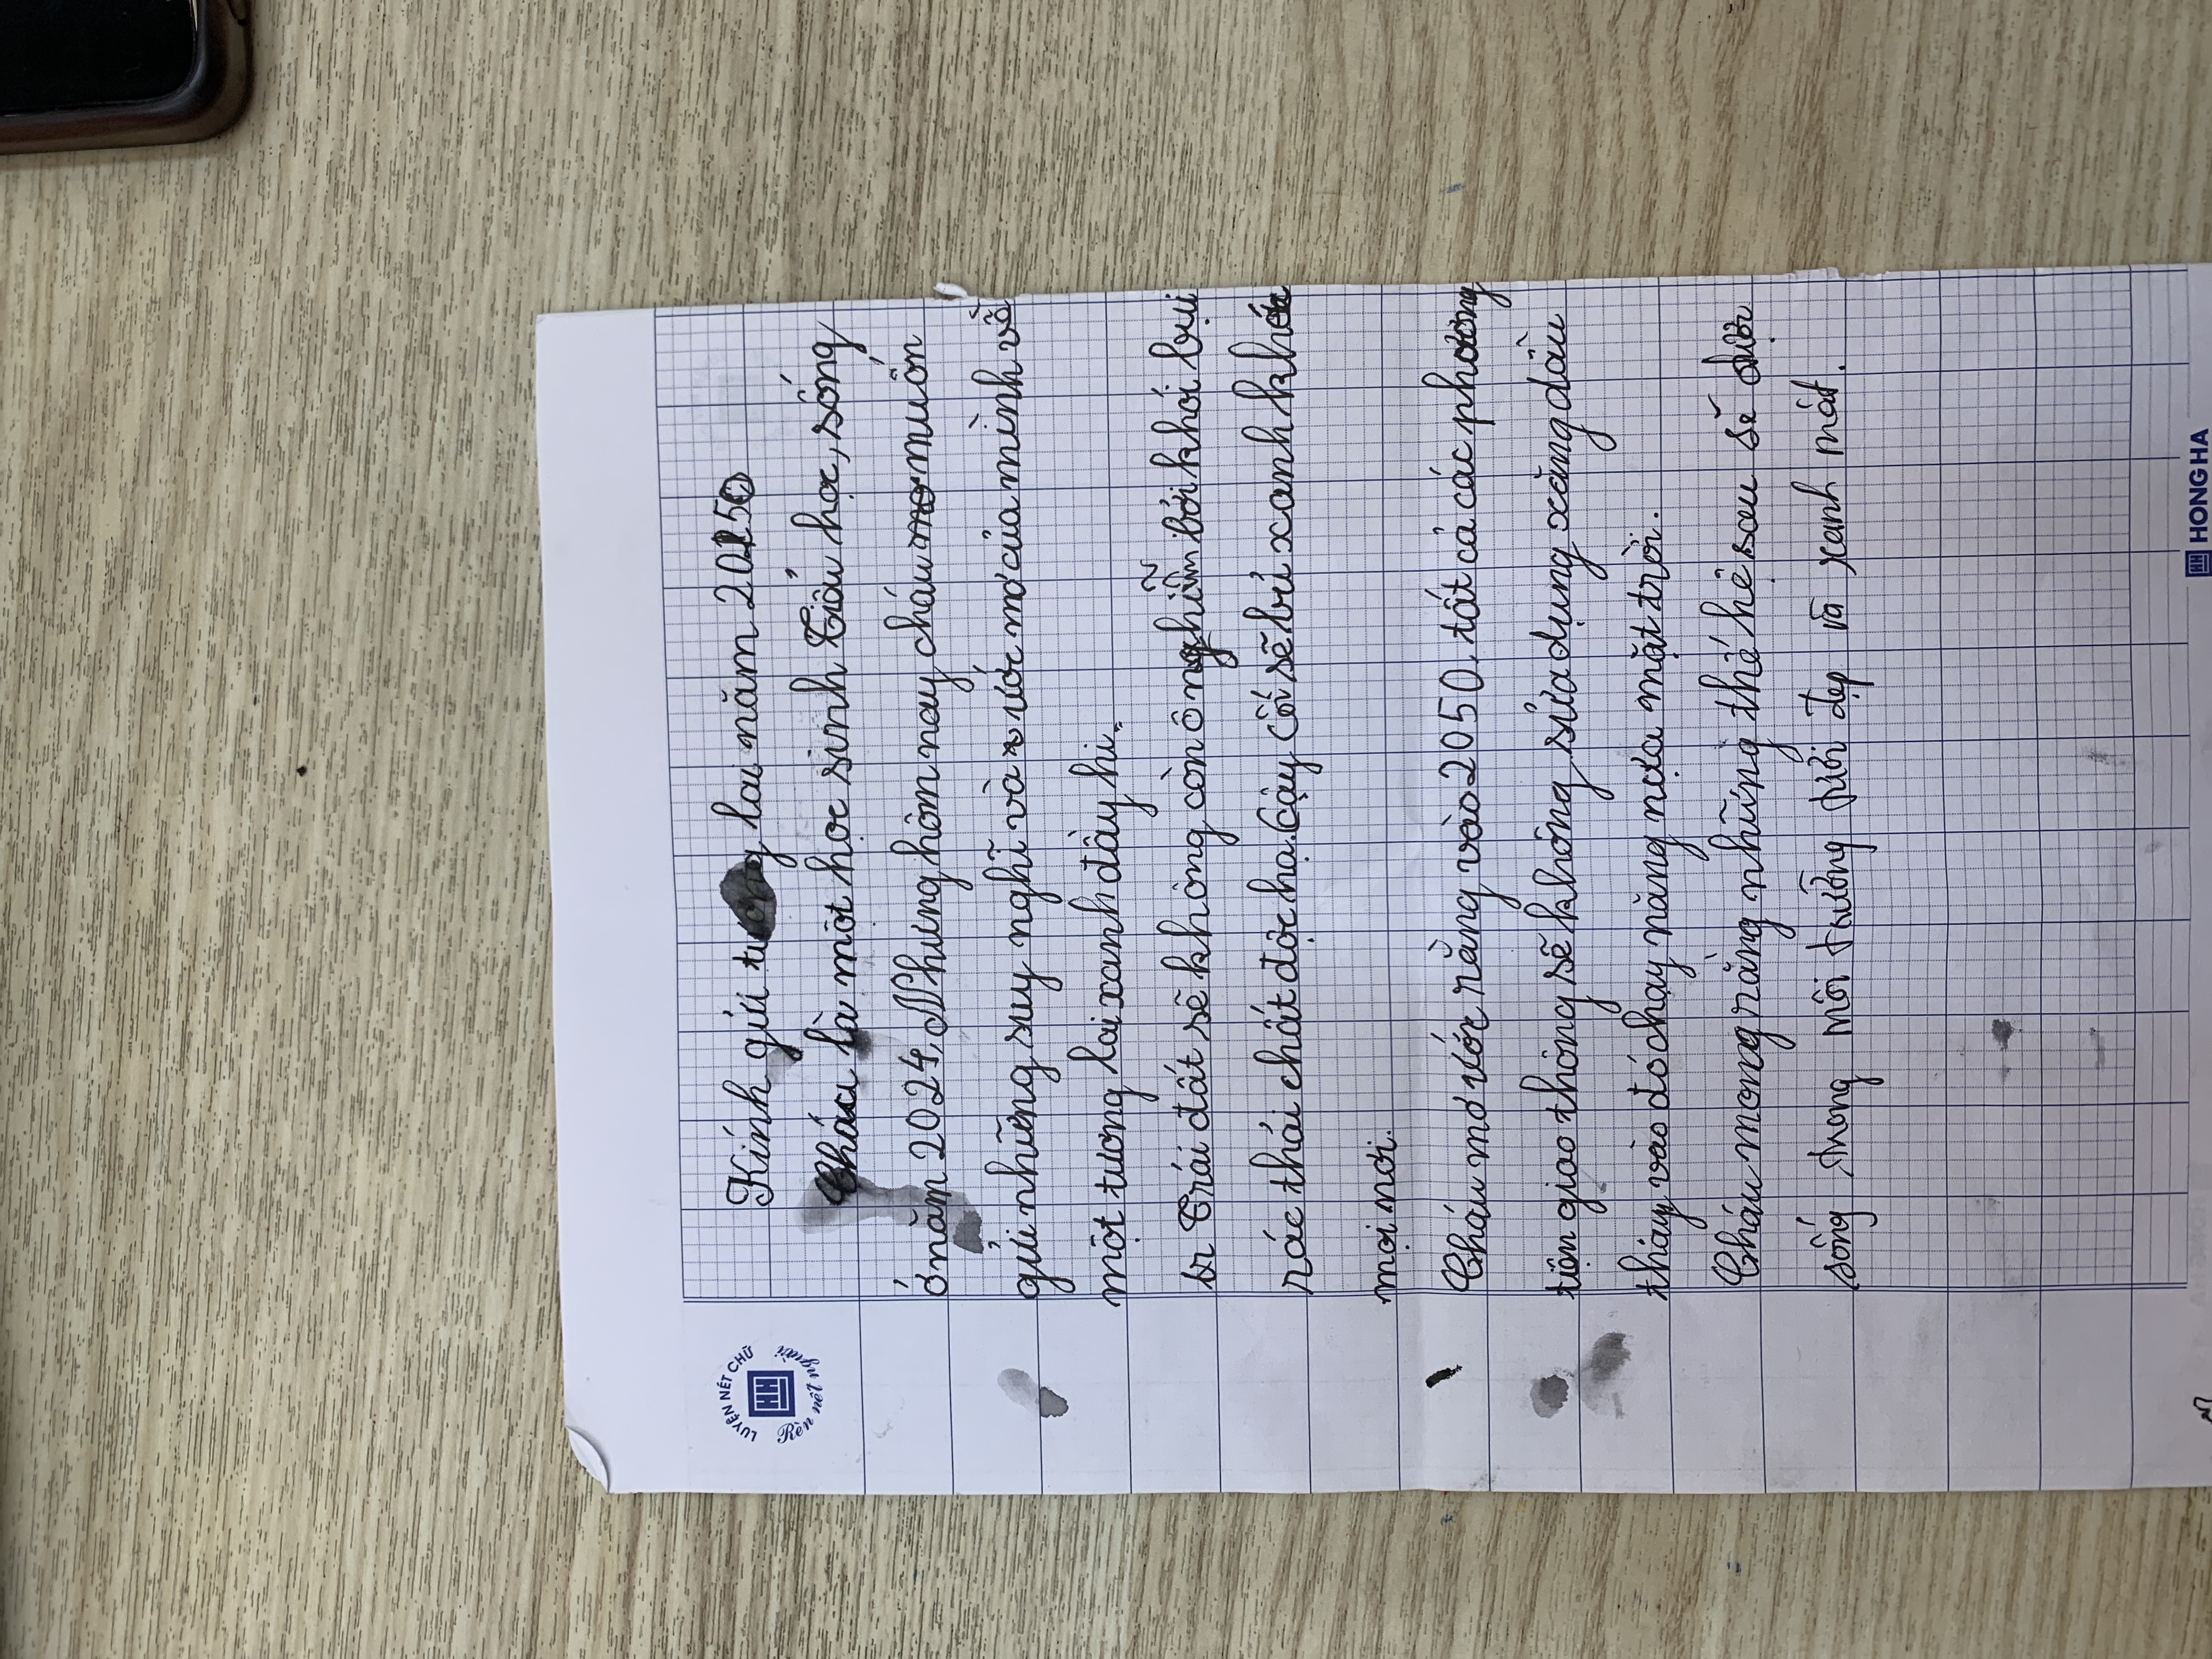 LUYỆN NÉT CHỮ
Rèn nết người
Kính gửi tương lai năm 2050
Cháu là một học sinh Tiểu học, sống
ở năm 2024. Nhưng hôm nay cháu muốn
gửi những suy nghĩ và ước mơ của mình về
một tương lai xanh đầy hi
Trái đất sẽ không còn ô nghiễm bởi khói bụi
rác thải chất độc hạ. Cây cối sẽ bủ xanh khắp
mọi nơi.
Cháu mơ ước rằng vào 2050, tất cả các phương
tiện giao thông sẽ không sửa dụng xăng dầu
thay vào đó chạy năng nựa mặt trời.
Cháu mong rằng những thế hệ sau sẽ được
sống trong môi trường tươi đẹp và xanh mát.
HONG HA